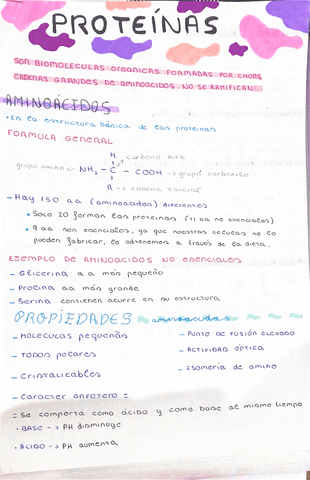 PROTEÍNAS
SON BIOMOLECULAS ORGANICAS FORMADAS POR CHONS,
CADENAS GRANDES DE AMINOACIDOS. NO SE RAMIFICAN.
AMINOÁCIDOS
• Es la estructura básica de las proteinas
FORMULA GENERAL
H
carbono alfa
grupo amino ← NH₂ - C - COOH → grupo carboxilo
R → cadena lateral
- Hay 150 aa (aminoacidos) diferentes
• Solo 20 forman las proteinas (11 aa no esenciales)
• 9 aa son esenciales, ya que nuestras celulas no lo
pueden fabricar, lo obtenemos a través de la dieta.
EJEMPLO DE AMINOACIDOS NO ESENCIALES
- Glicerina aa más pequeño
- Prolina aa más grande
- Serina contienen azufre en su estructura
PROPIEDADES aminoacidos
- MOLECULAS pequeñas
- TODOS POLARES
- CRISTALIZABLES
- Caracter ANFOTERO =
- PUNTO DE FUSIÓN ELEVADO
- ACTIVIDAD ÓPTICA
- ESOMERÍA DE AMINO
= Se comporta como ácido y como base al mismo tiempo
• BASE -> PH disminuye
• ÁCIDO -> PH aumenta